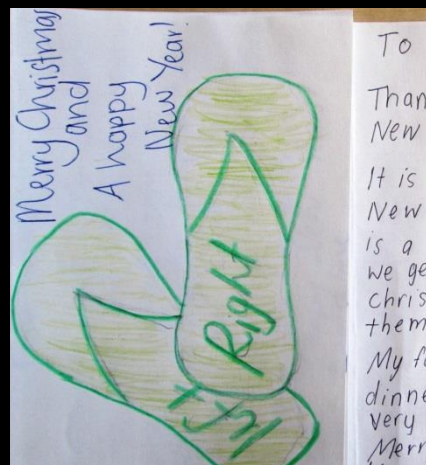 Merry Christmas
and
A happy
New Year!
Right
Left
To
Than
New
It is
New
is a
we ge
Chris
them
My fa
dinne
very
Merr